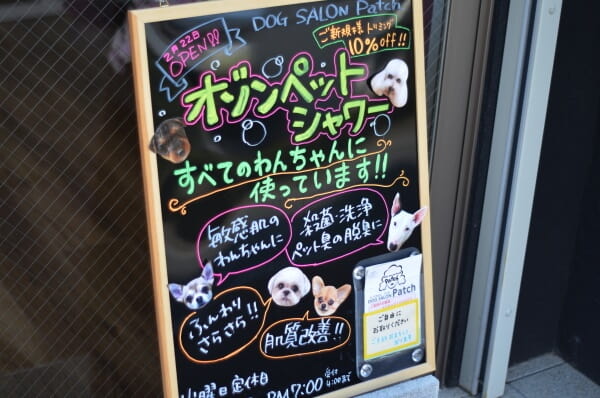 DOG SALON Patch
2月22日
OPEN!!
ご新規様トリミング
10%off!!
オゾンペット
シャワー
すべてのわんちゃんに
使っています!!
敏感肌の
わんちゃんに
殺菌・洗浄
ペット臭の脱臭に
ふんわり
さらさら!!
肌質改善!!
Patch
DOG SALON Patch
ご自由に
お取りください
曜日定休日
PM7:00
受付
4:00まで